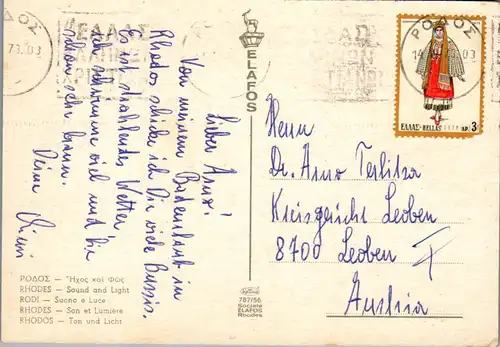 ΡΟΔΟΣ
73.03
ΕΛΛΑΣ
ELAFOS
ΡΟΔΟΣ
ΕΛΛΑΣ-HELLAS ΔΡ 3
Lieber Arno!
Von meinem Badeurlaub in
Rhodos schicke ich Dir viele Bussis.
Es ist strahlendes Wetter,
ich schwimme viel und bin
schon sehr braun.
Deine
Herrn
Dr. Arno Terlitza
Kreisgericht Leoben
8700 Leoben
Austria
ΡΟΔΟΣ — Ἦχος καὶ Φῶς
RHODES — Sound and Light
RODI — Suono e Luce
RHODES — Son et Lumière
RHODOS — Ton und Licht
787/56
Société
ELAFOS
Rhodes